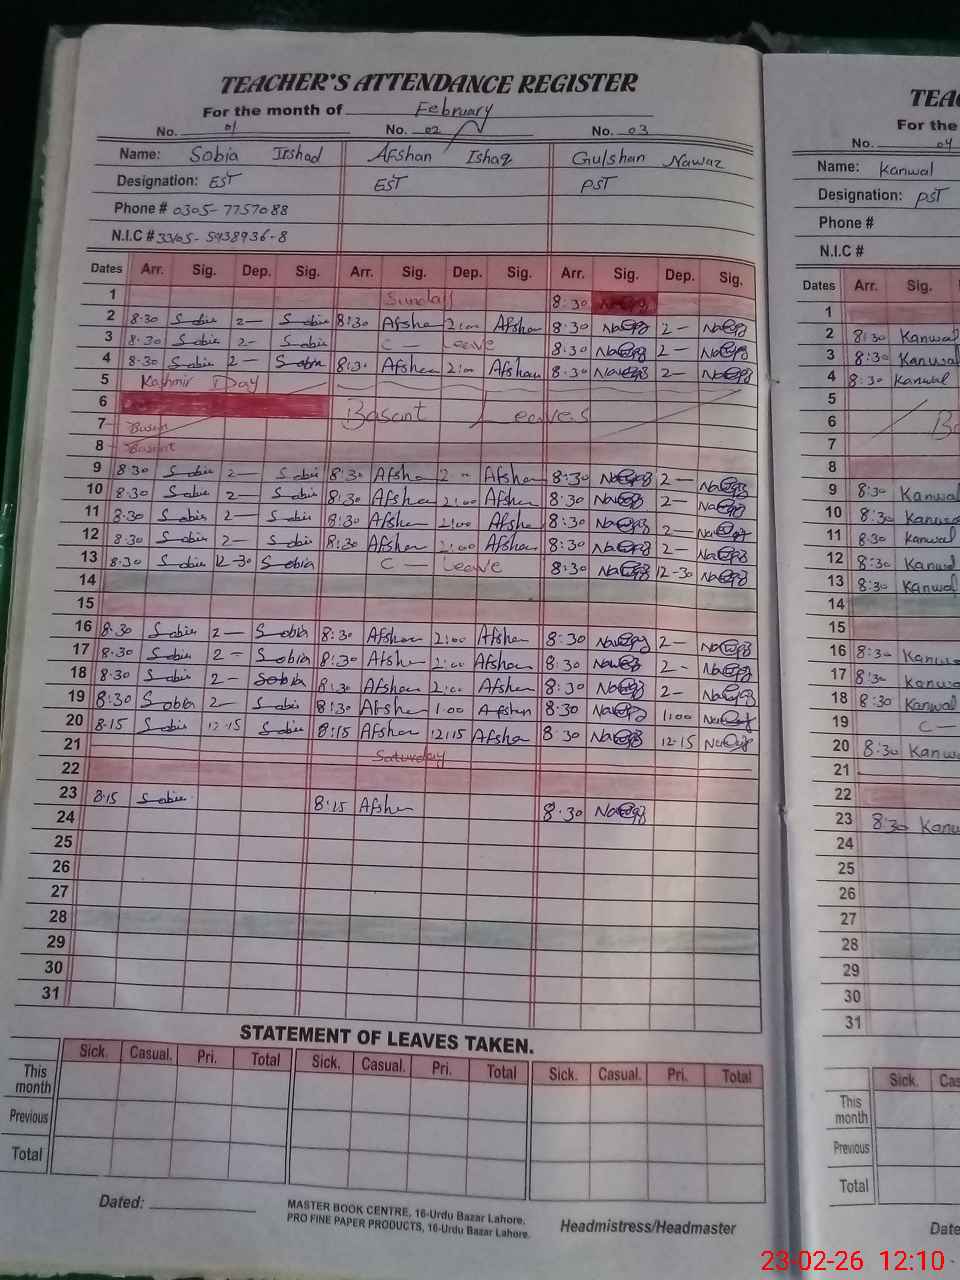 TEACHER'S ATTENDANCE REGISTER
For the month of February
No. 01 No. 02 No. 03
Name: Sobia Irshad Afshan Ishaq Gulshan Nawaz
Designation: EST EST PST
Phone # 0305-7757088
N.I.C # 33105-5938936-8
Dates Arr. Sig. Dep. Sig. Arr. Sig. Dep. Sig. Arr. Sig. Dep. Sig.
1 Sunday 8:30
2 8.30 Sobia 2— Sobia 8:30 Afshan 2:00 Afshan 8:30 2-
3 8.30 Sobia 2- Sobia C — Leave 8:30 2-
4 8.30 Sobia 2— Sobia 8:30 Afshan 2:00 Afshan 8.30 2-
5 Kashmir Day
6 Basant Leaves
7
8 Basant
9 8:30 Sobia 2— Sobia 8:30 Afshan 2 Afshan 8:30 2-
10 8:30 Sobia 2— Sobia 8:30 Afshan 2:00 Afshan 8:30 2-
11 8:30 Sobia 2— Sobia 8:30 Afshan 2:00 Afshan 8:30 2-
12 8.30 Sobia 2- Sobia 8:30 Afshan 2:00 Afshan 8:30 2-
13 8.30 Sobia 12-30 Sobia C — Leave 8:30 12-30
14
15
16 8:30 Sobia 2— Sobia 8:30 Afshan 2:00 Afshan 8:30 2-
17 8:30 Sobia 2- Sobia 8:30 Afshan 2:00 Afshan 8:30 2-
18 8:30 Sobia 2- Sobia 8:30 Afshan 2:00 Afshan 8:30 2-
19 8:30 Sobia 2- Sobia 8:30 Afshan 1:00 Afshan 8:30 1:00
20 8.15 Sobia 12.15 Sobia 8:15 Afshan 12:15 Afshan 8 30 12-15
21 Saturday
22
23 8.15 Sobia 8:15 Afshan 8:30
24
25
26
27
28
29
30
31
STATEMENT OF LEAVES TAKEN.
Sick. Casual. Pri. Total Sick. Casual. Pri. Total Sick. Casual. Pri. Total
This month
Previous
Total
Dated:
MASTER BOOK CENTRE, 16-Urdu Bazar Lahore.
PRO FINE PAPER PRODUCTS, 16-Urdu Bazar Lahore.
Headmistress/Headmaster
TEAC
For the
No. 04
Name: Kanwal
Designation: PST
Phone #
N.I.C #
Dates Arr. Sig.
1
2 8:30 Kanwal
3 8:30 Kanwal
4 8:30 Kanwal
5
6
7
8
9 8:30 Kanwal
10 8:30 Kanwal
11 8:30 Kanwal
12 8:30 Kanwal
13 8:30 Kanwal
14
15
16 8:30 Kanwal
17 8:30 Kanwal
18 8:30 Kanwal
19 C —
20 8:30 Kanwal
21
22
23 8:30 Kanwal
24
25
26
27
28
29
30
31
Sick. Cas
This month
Previous
Total
Date
23-02-26 12:10